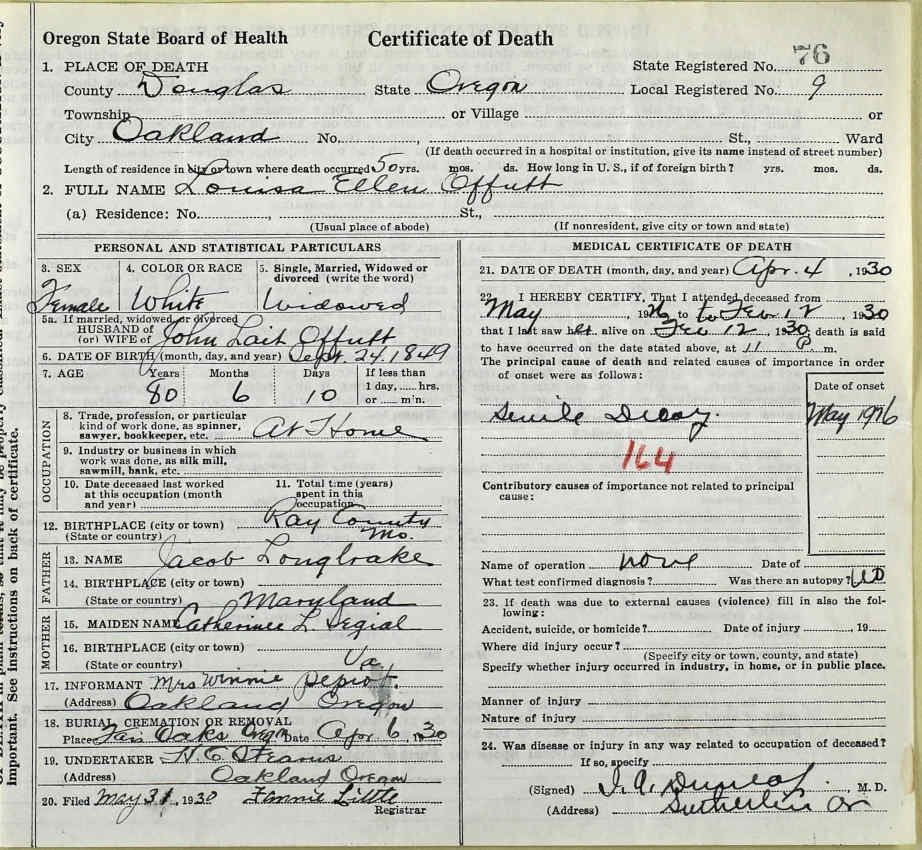 Oregon State Board of Health Certificate of Death
76
1. PLACE OF DEATH State Registered No.
County Douglas State Oregon Local Registered No. 9
Township or Village or
City Oakland No. , St., Ward
(If death occurred in a hospital or institution, give its name instead of street number)
Length of residence in city or town where death occurred 50 yrs. mos. ds. How long in U. S., if of foreign birth? yrs. mos. ds.
2. FULL NAME Louisa Ellen Offutt
(a) Residence: No. , St.,
(Usual place of abode) (If nonresident, give city or town and state)
PERSONAL AND STATISTICAL PARTICULARS
3. SEX 4. COLOR OR RACE 5. Single, Married, Widowed or
divorced (write the word)
Female White Widowed
5a. If married, widowed, or divorced
HUSBAND of
(or) WIFE of John Lait Offutt
6. DATE OF BIRTH (month, day, and year) Sept. 24, 1849
7. AGE Years Months Days If less than
1 day, hrs.
80 6 10 or min.
OCCUPATION
8. Trade, profession, or particular
kind of work done, as spinner,
sawyer, bookkeeper, etc. At Home
9. Industry or business in which
work was done, as silk mill,
sawmill, bank, etc.
10. Date deceased last worked 11. Total time (years)
at this occupation (month spent in this
and year) occupation
12. BIRTHPLACE (city or town) Ray County
(State or country) Mo.
FATHER
13. NAME Jacob Longbrake
14. BIRTHPLACE (city or town)
(State or country) Maryland
MOTHER
15. MAIDEN NAME Catherine L.
16. BIRTHPLACE (city or town)
(State or country) Va.
17. INFORMANT Mrs Winnie
(Address) Oakland Oregon
18. BURIAL CREMATION OR REMOVAL
Place Fair Oaks Oregon Date Apr 6, 1930
19. UNDERTAKER N. C. Stearns
(Address) Oakland Oregon
20. Filed May 31, 1930 Fannie Little
Registrar
MEDICAL CERTIFICATE OF DEATH
21. DATE OF DEATH (month, day, and year) Apr. 4, 1930
22. I HEREBY CERTIFY, That I attended deceased from
May , 1926 to Feb 12, 1930
that I last saw her alive on Feb 12, 1930, death is said
to have occurred on the date stated above, at 11 P m.
The principal cause of death and related causes of importance in order
of onset were as follows:
Date of onset
Senile Decay. May 1926
164
Contributory causes of importance not related to principal
cause:
Name of operation none Date of
What test confirmed diagnosis? Was there an autopsy? no
23. If death was due to external causes (violence) fill in also the fol-
lowing:
Accident, suicide, or homicide? Date of injury , 19
Where did injury occur?
(Specify city or town, county, and state)
Specify whether injury occurred in industry, in home, or in public place.
Manner of injury
Nature of injury
24. Was disease or injury in any way related to occupation of deceased?
If so, specify
(Signed) , M. D.
(Address) Sutherlin Or
important. See instructions on back of certificate.